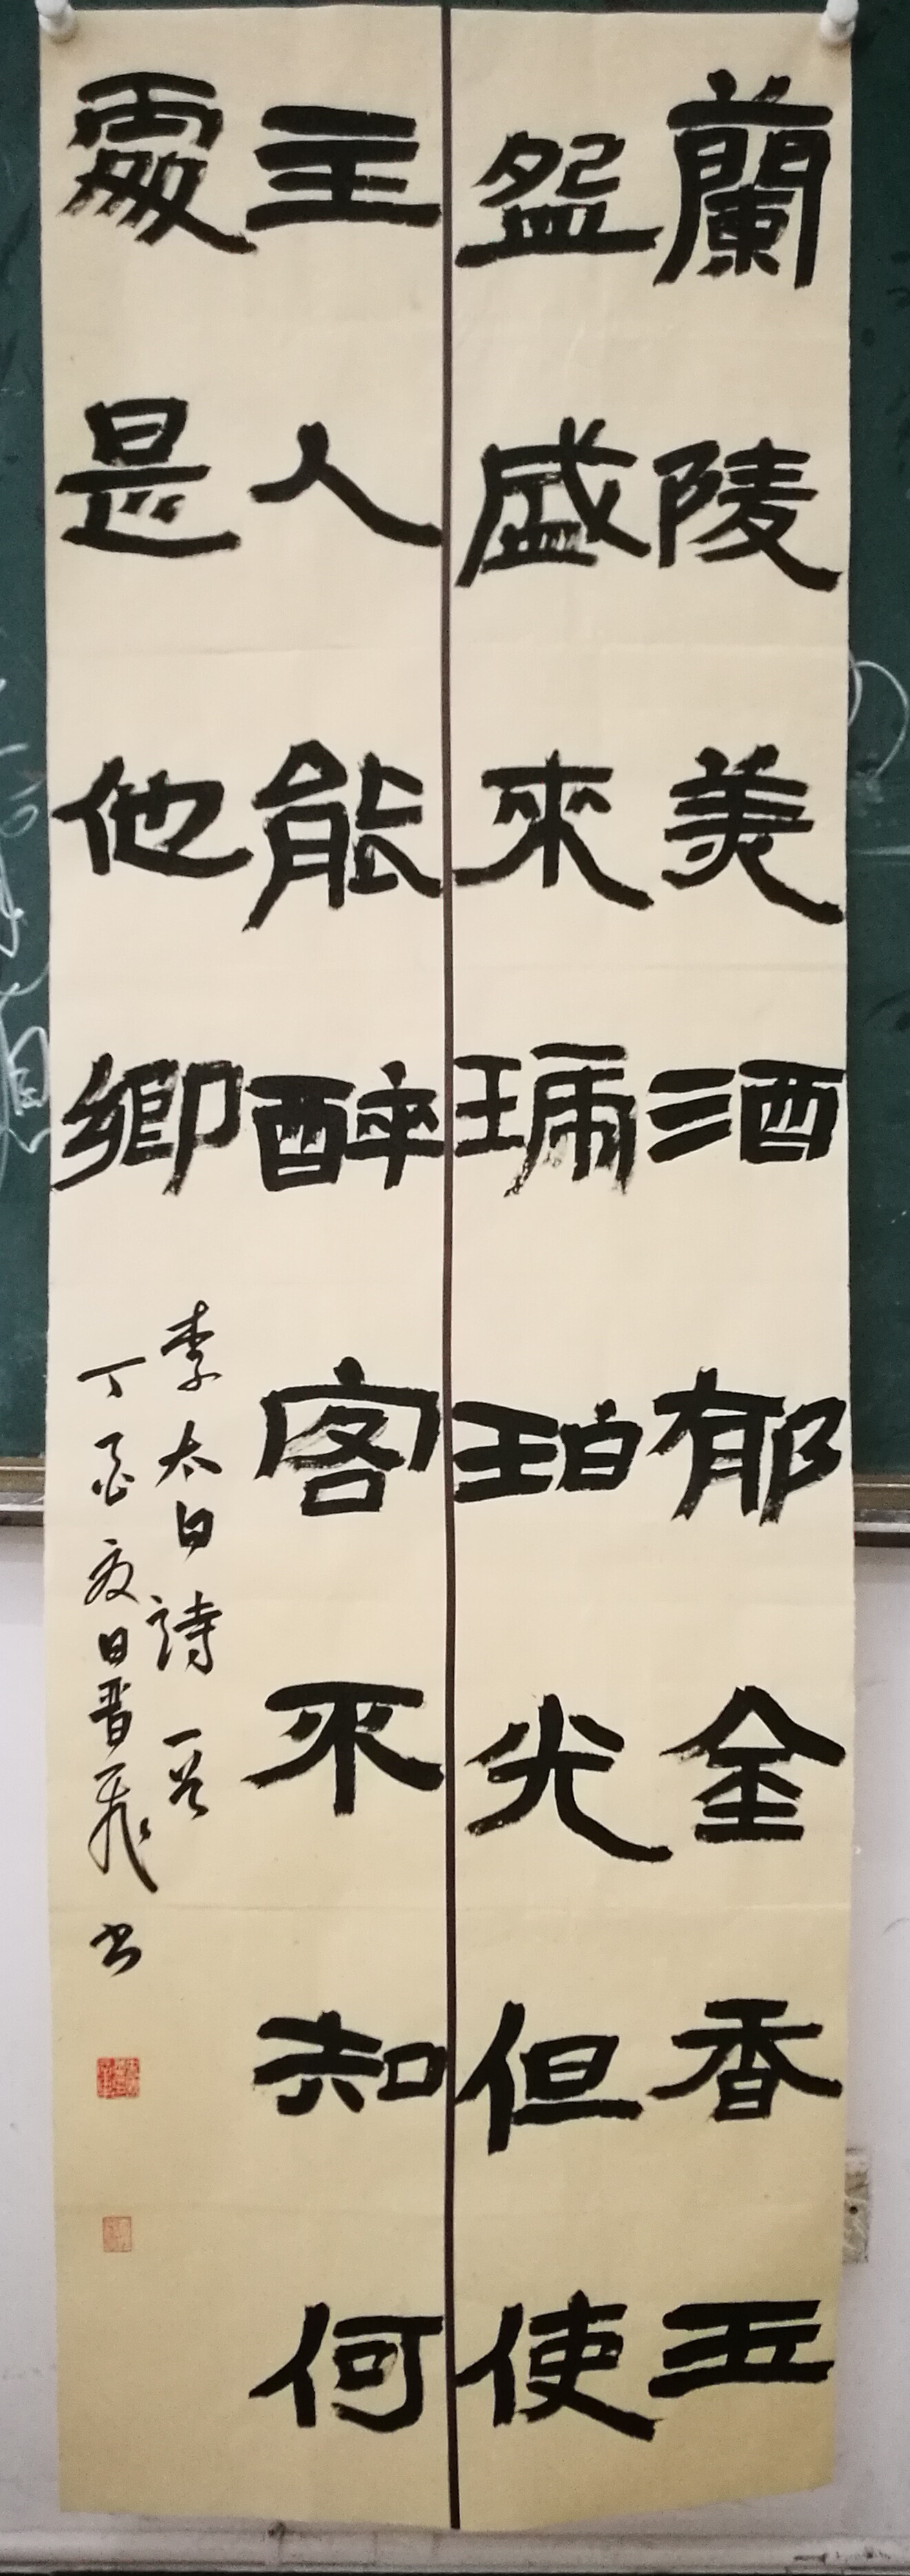 蘭陵美酒郁金香玉
盌盛來琥珀光但使
主人能醉客不知何
處是他鄉
李太白詩一首
丁酉夏日晋飛书